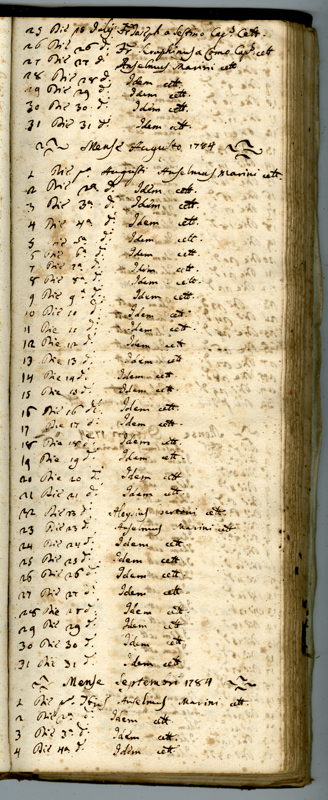 25 Die 25 Julij Fr. Joseph a Cap. Cett.
26 Die 26 d. Fr. Seraphinus a Como Cap. cett
27 Die 27 d. Anselmus Marini cett
28 Die 28 d. Idem cett.
29 Die 29 d. Idem cett.
30 Die 30 d. Idem cett.
31 Die 31 d. Idem cett.
Mense Augusto 1784
1 Die pa. Augusti Anselmus Marini cett
2 Die 2a d. Idem cett.
3 Die 3a d. Idem cett.
4 Die 4a d. Idem cett.
5 Die 5a d. Idem cett.
6 Die 6a d. Idem cett.
7 Die 7a d. Idem cett.
8 Die 8a d. Idem cett.
9 Die 9a d. Idem cett.
10 Die 10 d. Idem cett.
11 Die 11 d. Idem cett.
12 Die 12 d. Idem cett.
13 Die 13 d. Idem cett
14 Die 14 d. Idem cett.
15 Die 15 d. Idem cett.
16 Die 16 d. Idem cett.
17 Die 17 d. Idem cett.
18 Die 18 d. Idem cett.
19 Die 19 d. Idem cett.
20 Die 20 d. Idem cett.
21 Die 21 d. Idem cett.
22 Die d. Aloysius cett.
23 Die 23 d. Anselmus Marini cett.
24 Die 24 d. Idem cett.
25 Die 25 d. Idem cett.
26 Die 26 d. Idem cett.
27 Die 27 d. Idem cett.
28 Die 28 d. Idem cett.
29 Die 29 d. Idem cett.
30 Die 30 d. Idem cett.
31 Die 31 d. Idem cett.
Mense Septembri 1784
1 Die pa. Anselmus Marini cett.
2 Die 2a d. Idem cett.
3 Die 3a d. Idem cett.
4 Die 4a d. Idem cett.